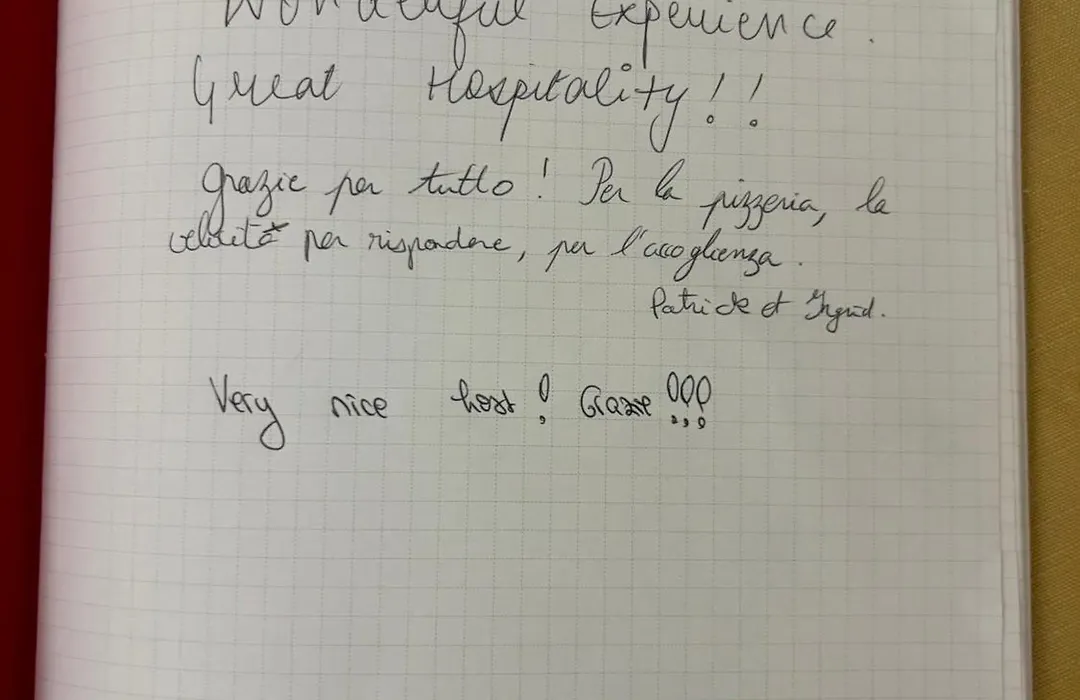 Wonderful Experience.
Great Hospitality!!
Grazie per tutto! Per la pizzeria, la
velocità per rispondere, per l'accoglienza.
Patrick et Ingrid.
Very nice host! Grazie!!!